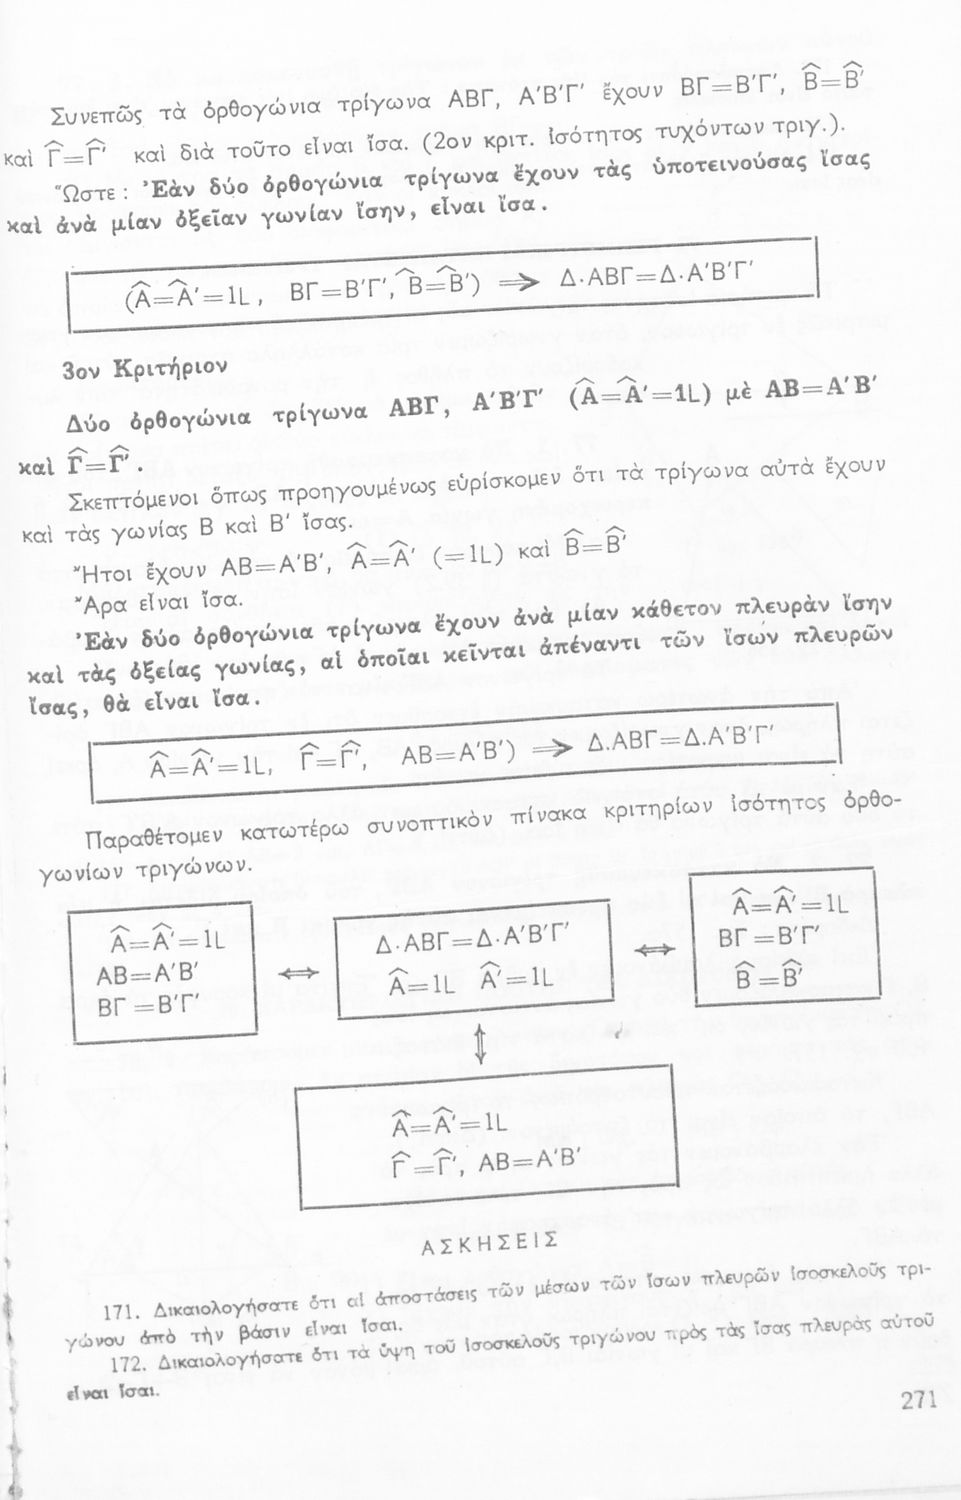 Συνεπῶς τὰ ὀρθογώνια τρίγωνα ΑΒΓ, Α'Β'Γ' ἔχουν ΒΓ=Β'Γ', B̂=B̂'
καὶ Γ̂=Γ̂' καὶ διὰ τοῦτο εἶναι ἴσα. (2ον κριτ. ἰσότητος τυχόντων τριγ.).
Ὥστε : Ἐὰν δύο ὀρθογώνια τρίγωνα ἔχουν τὰς ὑποτεινούσας ἴσας
καὶ ἀνὰ μίαν ὀξεῖαν γωνίαν ἴσην, εἶναι ἴσα.
(Â=Â'=1L, ΒΓ=Β'Γ', B̂=B̂') ⇒ Δ·ΑΒΓ=Δ·Α'Β'Γ'
3ον Κριτήριον
Δύο ὀρθογώνια τρίγωνα ΑΒΓ, Α'Β'Γ' (Â=Â'=1L) μὲ ΑΒ=Α'Β'
καὶ Γ̂=Γ̂'.
Σκεπτόμενοι ὅπως προηγουμένως εὑρίσκομεν ὅτι τὰ τρίγωνα αὐτὰ ἔχουν
καὶ τὰς γωνίας Β καὶ Β' ἴσας.
Ἤτοι ἔχουν ΑΒ=Α'Β', Â=Â' (=1L) καὶ B̂=B̂'
Ἄρα εἶναι ἴσα.
Ἐὰν δύο ὀρθογώνια τρίγωνα ἔχουν ἀνὰ μίαν κάθετον πλευρὰν ἴσην
καὶ τὰς ὀξείας γωνίας, αἱ ὁποῖαι κεῖνται ἀπέναντι τῶν ἴσων πλευρῶν
ἴσας, θὰ εἶναι ἴσα.
Â=Â'=1L, Γ̂=Γ̂', ΑΒ=Α'Β') ⇒ Δ.ΑΒΓ=Δ.Α'Β'Γ'
Παραθέτομεν κατωτέρω συνοπτικὸν πίνακα κριτηρίων ἰσότητος ὀρθο-
γωνίων τριγώνων.
Â=Â'=1L
ΑΒ=Α'Β'
ΒΓ=Β'Γ'
⇔
Δ·ΑΒΓ=Δ·Α'Β'Γ'
Â=1L Â'=1L
⇔
Â=Â'=1L
ΒΓ=Β'Γ'
B̂=B̂'
⇕
Â=Â'=1L
Γ̂=Γ̂', ΑΒ=Α'Β'
ΑΣΚΗΣΕΙΣ
171. Δικαιολογήσατε ὅτι αἱ ἀποστάσεις τῶν μέσων τῶν ἴσων πλευρῶν ἰσοσκελοῦς τρι-
γώνου ἀπὸ τὴν βάσιν εἶναι ἴσαι.
172. Δικαιολογήσατε ὅτι τὰ ὕψη τοῦ ἰσοσκελοῦς τριγώνου πρὸς τὰς ἴσας πλευρὰς αὐτοῦ
εἶναι ἴσαι.
271